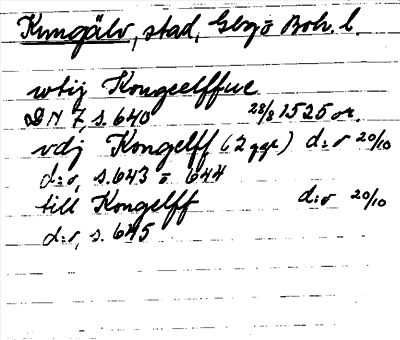 Kungälv, stad, Gbg o Boh. l.
wtij Kongeelffue
DN 7, s. 640 28/8 1525 or.
vdj Kongelff (2 ggr) d:o 20/10
d:o, s. 643 o. 644
till Kongelff d:o 20/10
d:o, s. 645